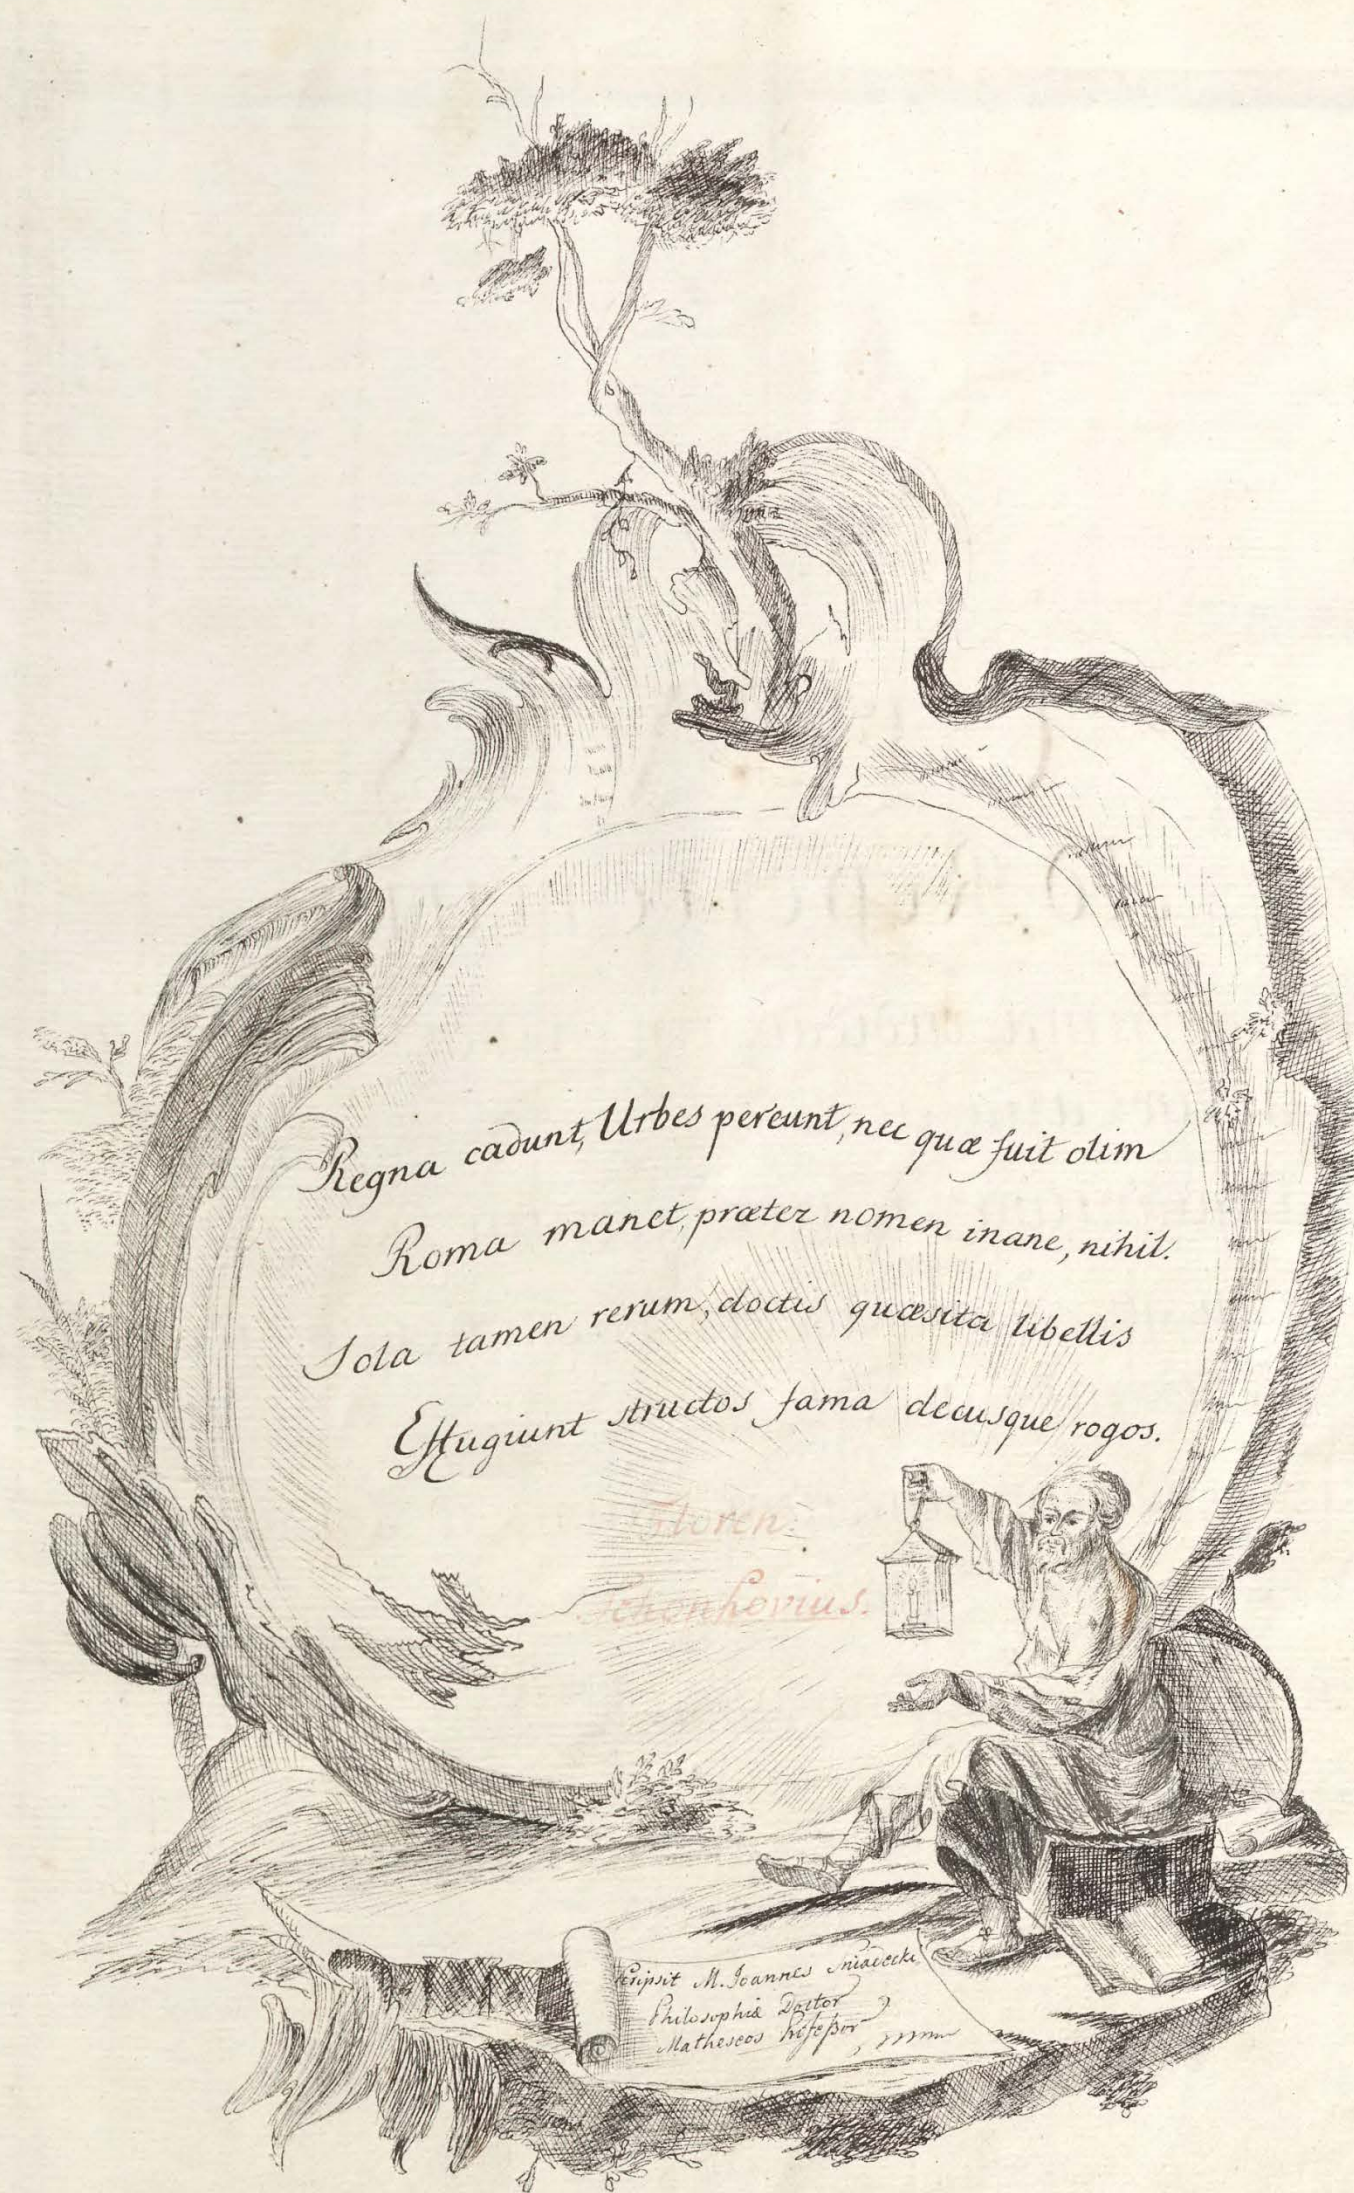 Regna cadunt, Urbes pereunt, nec quæ fuit olim
Roma manet, præter nomen inane, nihil.
Sola tamen rerum, doctis quæsita libellis
Effugiunt structos fama decusque rogos.
Floren:
Schonhovius.
Scripsit M. Joannes Sniadecki
Philosophiæ Doctor
Matheseos Profeßor